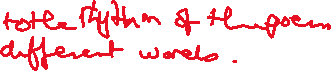 to the Rhythm of the poem
different words.